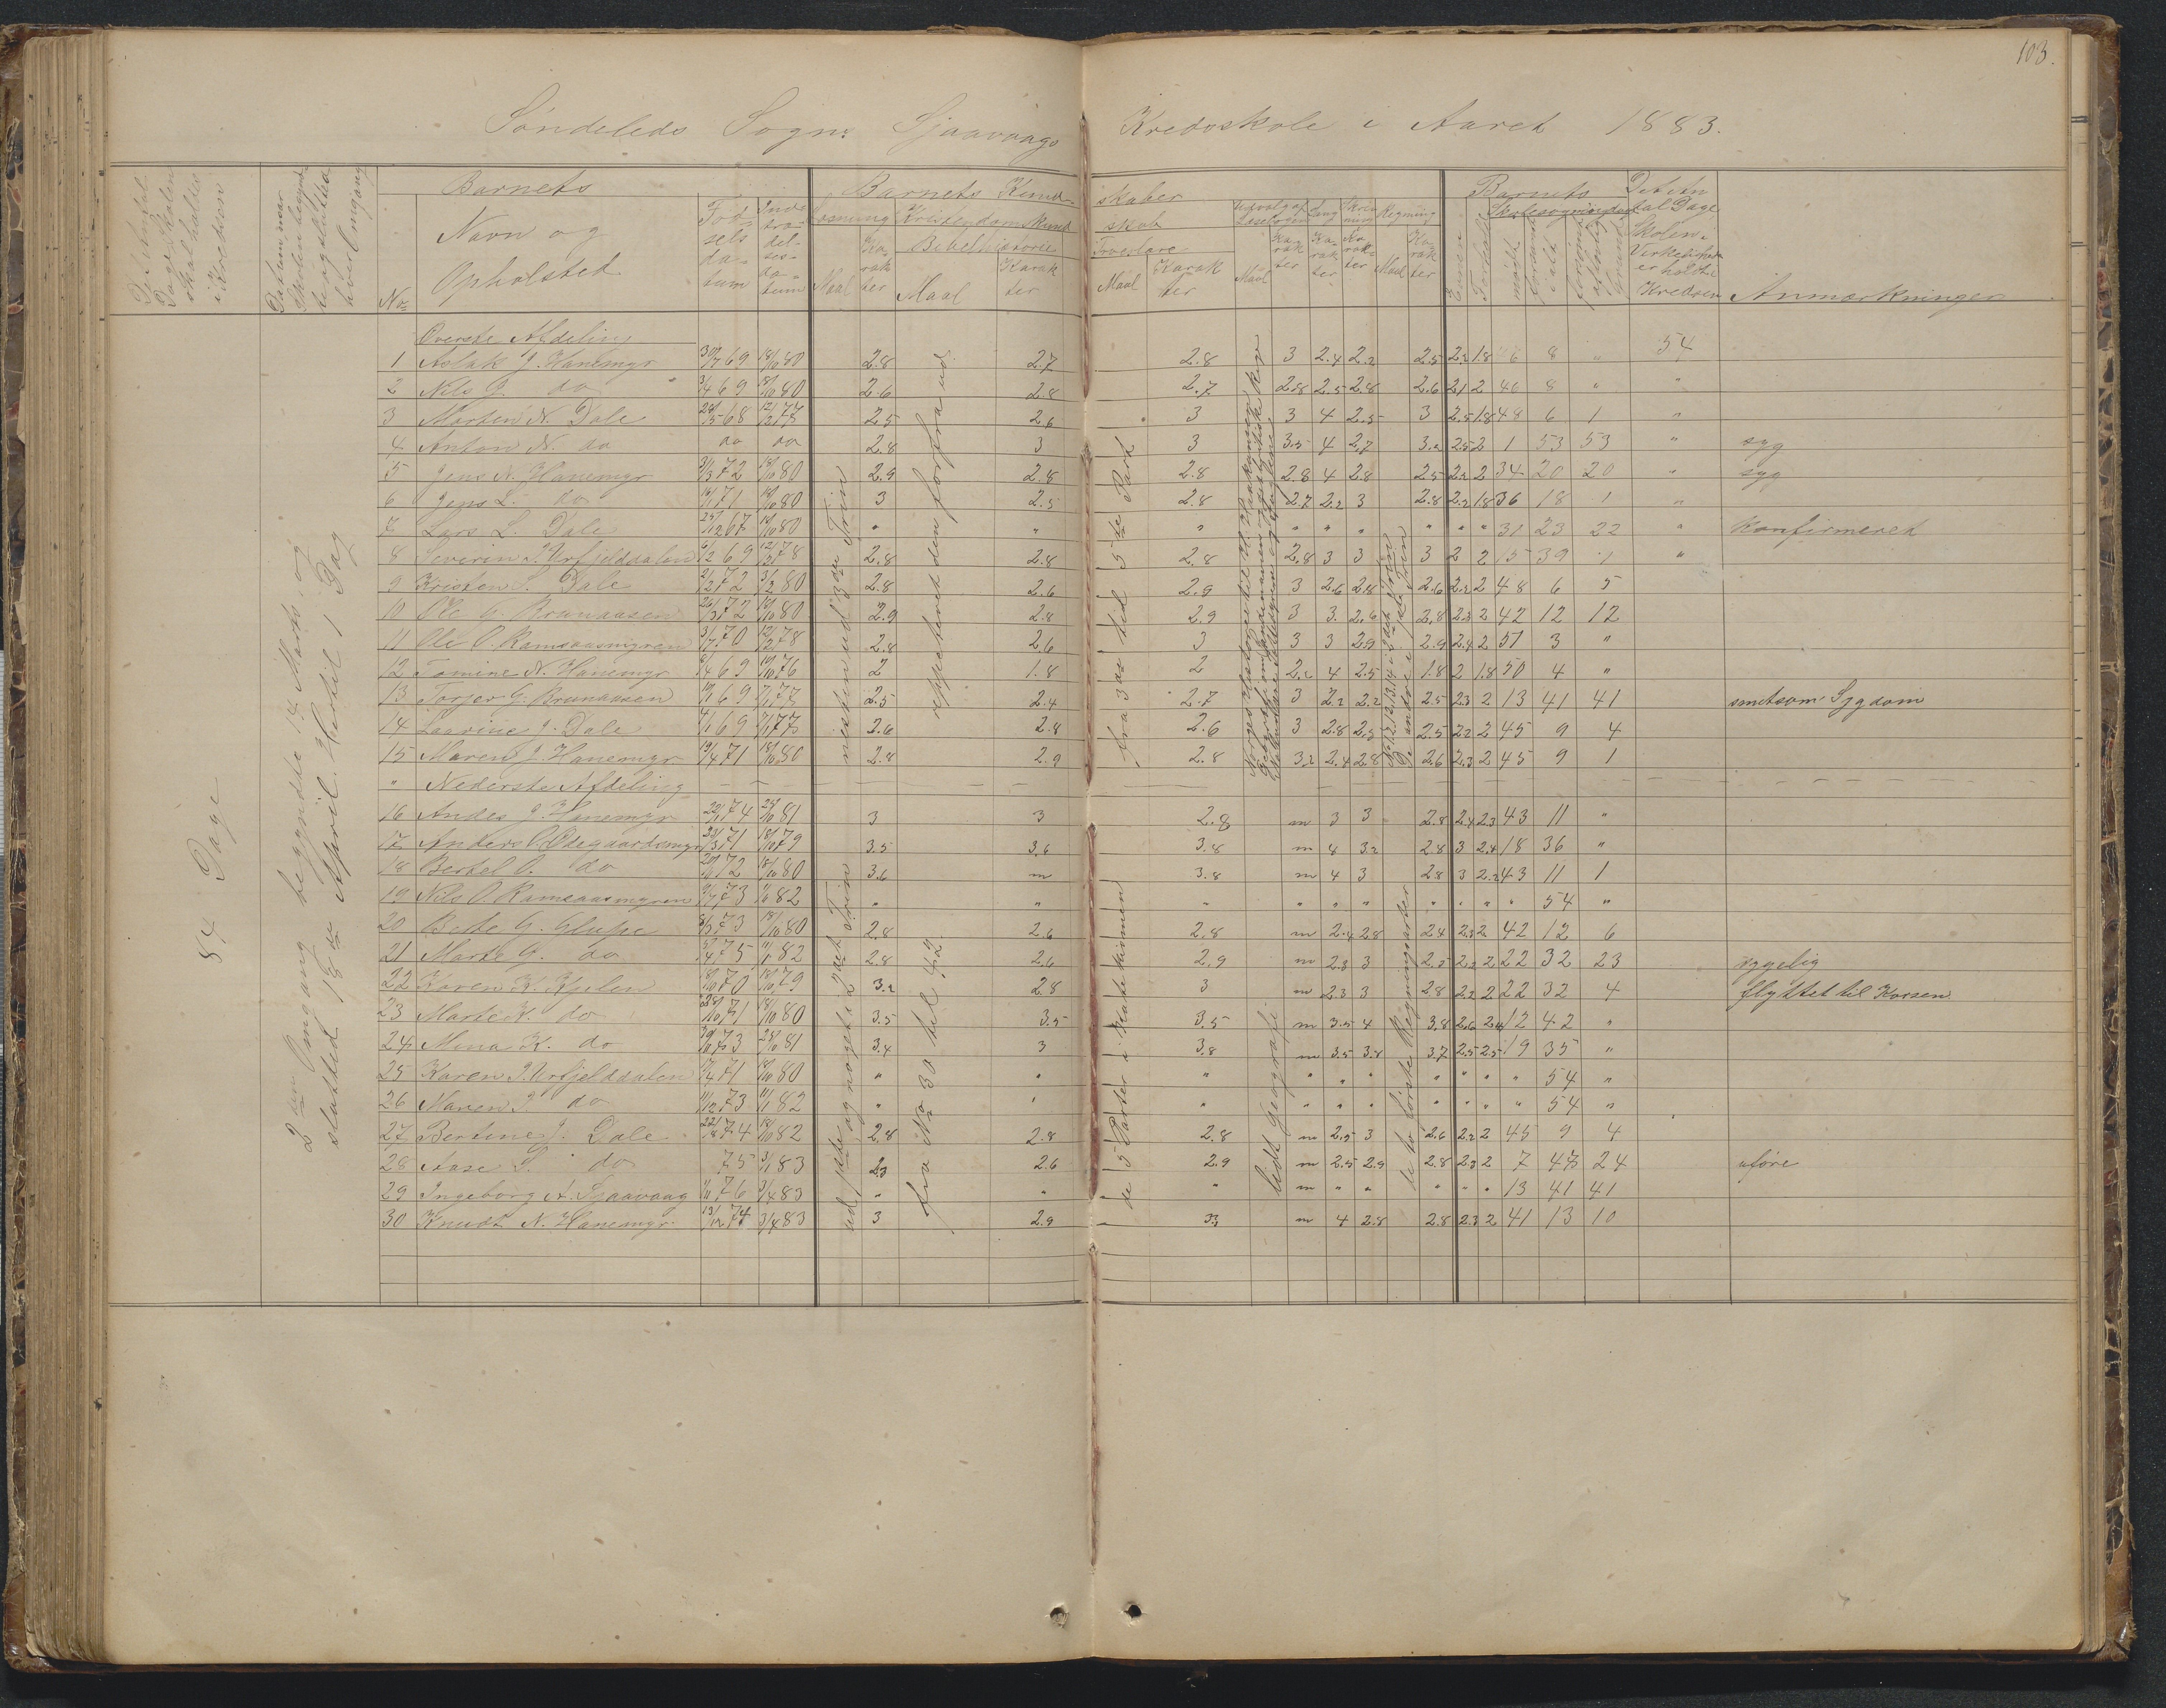 103.
Søndeleds Sogn: Sjaavaags Kredsskole i Aaret 1883.
Det Antal Dage Skolen skal holdes i Kredsen
Datum naar Skolen begyndte og sluttede hver Omgang
No
Barnets
Navn og Opholsted
Fødselsdatum
Indtrædelsesdatum
Barnets Kundskaber
Læsning
Maal
Karakter
Kristendomskundskab
Bibelhistorie
Maal
Karakter
Troeslære
Maal
Karakter
Udvalg af Læsebogen
Maal
Karakter
Sang
Karakter
Skrivning
Karakter
Regning
Maal
Karakter
Evner
Forhold
Barnets Skolesøgningsdage
mødt
forsømt i alt
forsømt af lovlig Grund
Det Antal Dage Skolen i Virkeligheden er holdt i Kredsen
Anmærkninger
84 Dage
2den Omgang begyndte 14 Marts og
slutted 18de April. Hertil 1 Dag
Øverste Afdeling
1 Aslak J. Hanemyr 30/7 69 18/10 80 2.8 2.7 2.8 3 2.4 2.2 2.5 2.2 1.8 46 8 " 54
2 Nils J. do 3/4 69 18/10 80 2.6 2.8 2.7 2.8 2.5 2.8 2.6 2.1 2 46 8 " "
3 Morten N. Dale 28/5 68 12/2 77 2.5 2.6 3 3 4 2.5 3 2.5 1.8 48 6 1 "
4 Anton N. do do do 2.8 3 3 3.5 4 2.7 3.2 2.5 2 1 53 53 " syg
5 Jens N. Hanemyr 3/3 72 18/10 80 2.9 2.8 2.8 2.8 4 2.8 2.5 2.2 2 34 20 20 " syg
6 Jens L. do 71 18/10 80 3 2.5 2.8 2.7 2.2 3 2.8 2.2 1.8 36 18 1 "
7 Lars L. Dale 25/12 67 18/10 80 " " " " " " " " " 31 23 22 " Konfirmeret
8 Severin J. Urfjelddalen 69 12/2 78 2.8 2.8 2.8 2.8 3 3 3 2 2 15 39 1 "
9 Kristen S. Dale 2/12 72 3/2 80 2.8 2.6 2.9 3 2.6 2.8 2.6 2.2 2 48 6 5
10 Ole G. Brunaasen 26/3 72 18/10 80 2.9 2.8 2.9 3 3. 2.6 2.8 2.3 2 42 12 12
11 Ole O. Ramsaasmyren 3/7 70 12/2 78 2.8 2.6 3 3 3 2.9 2.9 2.4 2 51 3 "
12 Tomine N. Hanemyr 69 18/10 76 2 1.8 2 2.2 4 2.5 1.8 2 1.8 50 4 "
13 Torjer G. Brunaasen 69 77 2.5 2.4 2.7 3 2.2 2.2 2.5 2.3 2 13 41 41 smitsom Sygdom
14 Laurine J. Dale 69 77 2.6 2.8 2.6 3 2.8 2.5 2.5 2.2 2 45 9 4
15 Maren J. Hanemyr 19/4 71 18/10 80 2.8 2.9 2.8 3.2 2.4 2.8 2.6 2.3 2 45 9 1
" Nederste Afdeling
16 Andes J. Hanemyr 22/1 74 81 3 3 2.8 m 3 3 2.8 2.4 2.3 43 11 "
17 Anders O. Ødegaardsmyr 71 18/10 79 3.5 3.6 3.8 m 4 3.2 2.8 3 2.4 18 36 "
18 Bertel O. do 72 18/10 80 3.6 m 3.8 m 4 3 2.8 3 2.2 43 11 1
19 Nils O. Ramsaasmyren 73 82 " " " " " " " " " " 54 "
20 Berte G. Glupe 73 18/10 80 2.8 2.6 2.8 m 2.4 2.8 2.4 2.3 2 42 12 6
21 Marte G. do 75 82 2.8 2.6 2.9 m 2.3 3 2.5 2.2 2 22 32 23 sygelig
22 Karen K. Kjelen 70 18/10 79 3.2 2.8 3 m 2.3 3 2.8 2.2 2 22 32 4 flyttet til Korsen
23 Marte K. do 71 18/10 80 3.5 3.5 3.5 m 3.5 4 3.8 2.6 2.4 12 42 "
24 Mina K. do 73 81 3.4 3 3.8 m 3.5 3.8 3.7 2.5 2.5 19 35 "
25 Karen J. Urfjelddalen 71 18/10 80 " " " " " " " " " " 54 "
26 Maren J. do 11/12 73 11/1 82 " " " " " " " " " 54 "
27 Bertine J. Dale 74 82 2.8 2.8 2.8 m 2.5 3 2.6 2.2 2 45 9 4
28 Aase S. do 75 3/1 83 2.3 2.6 2.9 m 2.5 2.9 2.8 2.3 2 7 47 24 uføre
29 Ingeborg A. Sjaavaag 76 3/4 83 " " " m " " " " " 13 41 41
30 Knudt N. Hanemyr 13/12 74 3/4 83 3 2.9 3 m 4 2.8 2.8 2.3 2 41 13 10
næsten ud 3die Trin
reppeteret den forfra ud
fra 3die til 5te Part
No 12, 13, 14 i 3det Trin
De andre i 1ste Trin
ud 1ste og noget i 2det Trin
fra No 30 til 42.
de 5 Parter i Katekismen
lidt Geografi
de to første Regningsarter